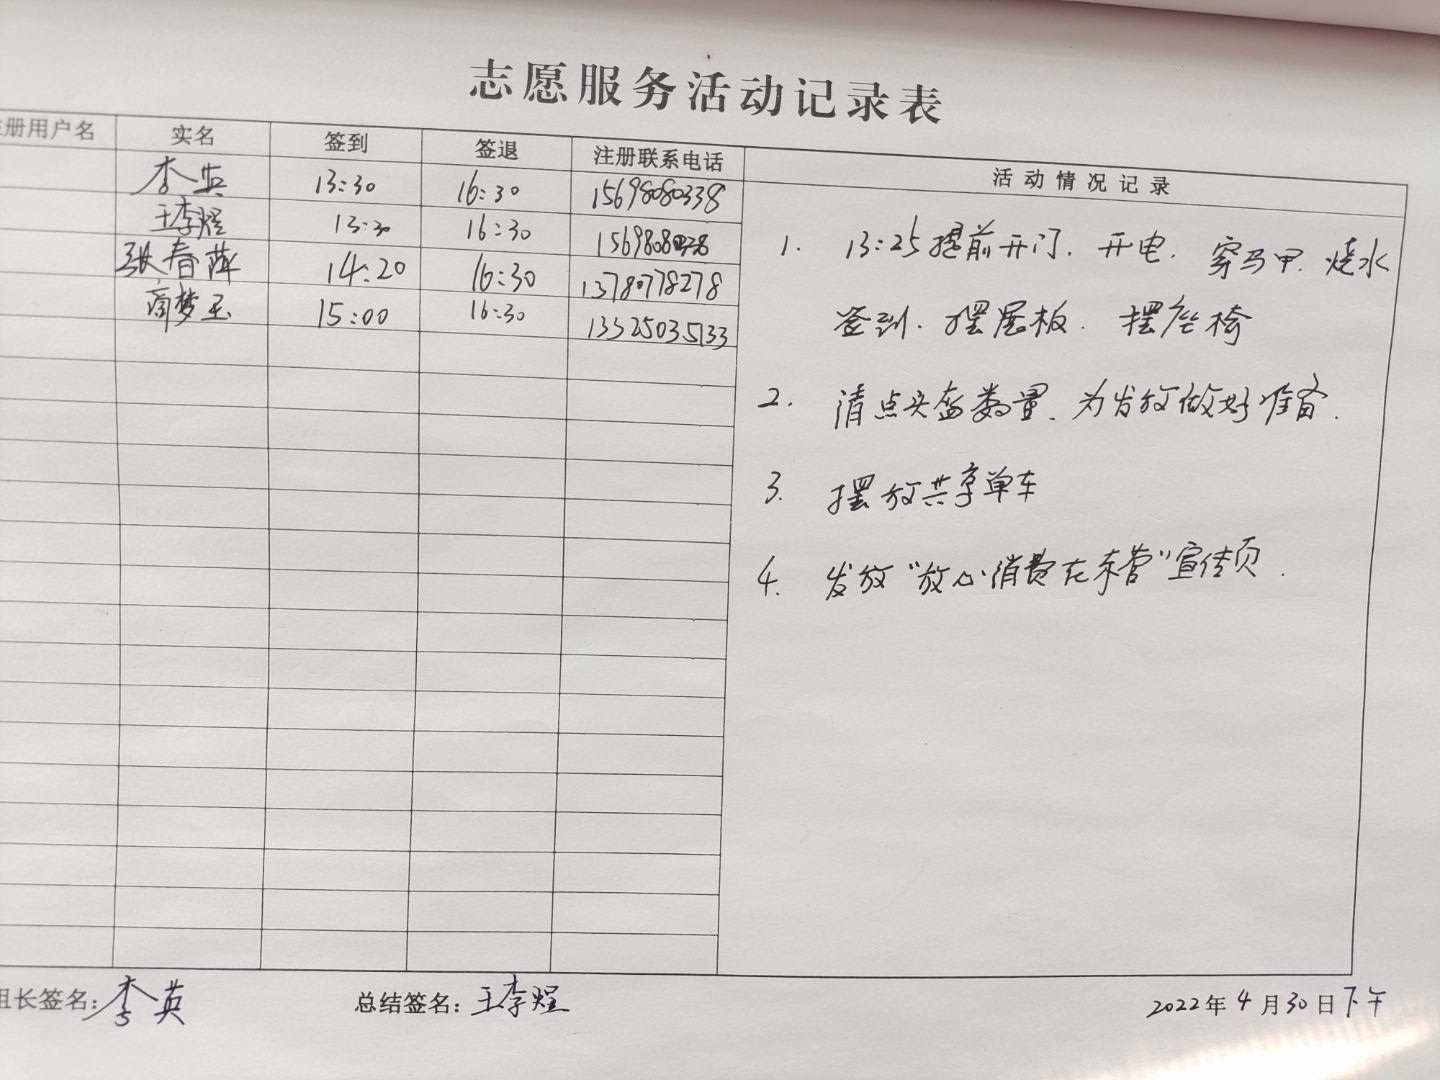 志愿服务活动记录表
注册用户名 实名 签到 签退 注册联系电话 活动情况记录
李英 13:30 16:30 15698080338
王李煜 13:30 16:30
张春萍 14:20 16:30 13780778278
商梦玉 15:00 16:30 13325035133
1. 13:25提前开门. 开电. 穿马甲. 烧水
签到. 摆展板. 摆座椅
2. 清点头盔数量、为发放做好准备.
3. 摆放共享单车
4. 发放"放心消费在东营"宣传页.
组长签名:李英 总结签名:王李煜 2022年4月30日下午